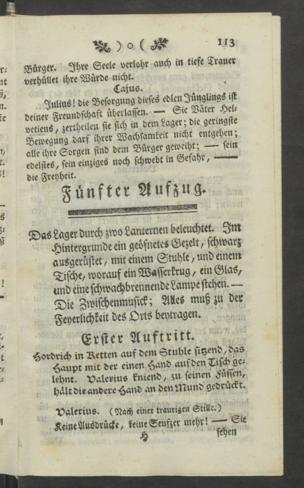 )o( 113
Bürger. Ihre Seele verlohr auch in tiefe Trauer
verhüllet ihre Würde nicht.
Cajus.
Julius! die Besorgung dieses edlen Jünglings ist
deiner Freundschaft überlassen. — Sie Väter Hel-
vetiens, zertheilen sie sich in dem Lager; die geringste
Bewegung darf ihrer Wachsamkeit nicht entgehen;
alle ihre Sorgen sind dem Bürger geweiht; — sein
edelstes, sein einziges noch schwebt in Gefahr, —
die Freyheit.
Fünfter Aufzug.
Das Lager durch zwo Lanternen beleuchtet. Im
Hintergrunde ein geöfnetes Gezelt, schwarz
ausgerüstet, mit einem Stuhle, und einem
Tische, worauf ein Wasserkrug, ein Glas,
und eine schwachbrennende Lampe stehen. —
Die Zwischenmusick; Alles muß zu der
Feyerlichkeit des Orts beytragen.
Erster Auftritt.
Hordrich in Ketten auf dem Stuhle sitzend, das
Haupt mit der einen Hand auf den Tisch ge-
lehnt. Valerius kniend, zu seinen Füssen,
hält die andere Hand an den Mund gedrückt.
Valerius. (Nach einer traurigen Stille.)
Keine Ausdrücke, keine Seufzer mehr! — Sie
H sehen